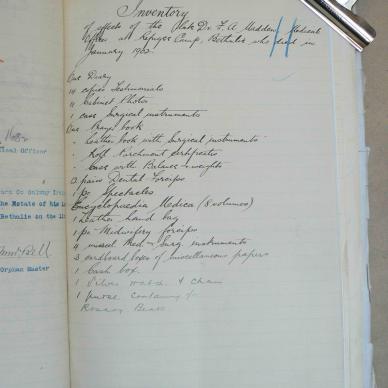 Inventory
of effects of the late Dr. F. A. Madden Medical
Officer at Refugee Camp, Bethulie who died in
January 1902
One Diary
copies Testimonials
Cabinet Photos
1 case Surgical instruments
One Prayer book
" Leather book with Surgical instruments
" Roll Parchment Certificates
" Case with Balance weights
pairs Dental Forceps
1 pr Spectacles
Encyclopaedia Medica (8 volumes)
1 Leather hand bag
1 pr Midwifery forceps
Med. Surg. instruments
3 cardboard boxes of miscellaneous papers
1 Cash box
1 Silver watch & chain
1 purse containing
Rosary Beads
ical Officer
Co Galway
the Estate of his l
Bethulie on the
Orphan Master